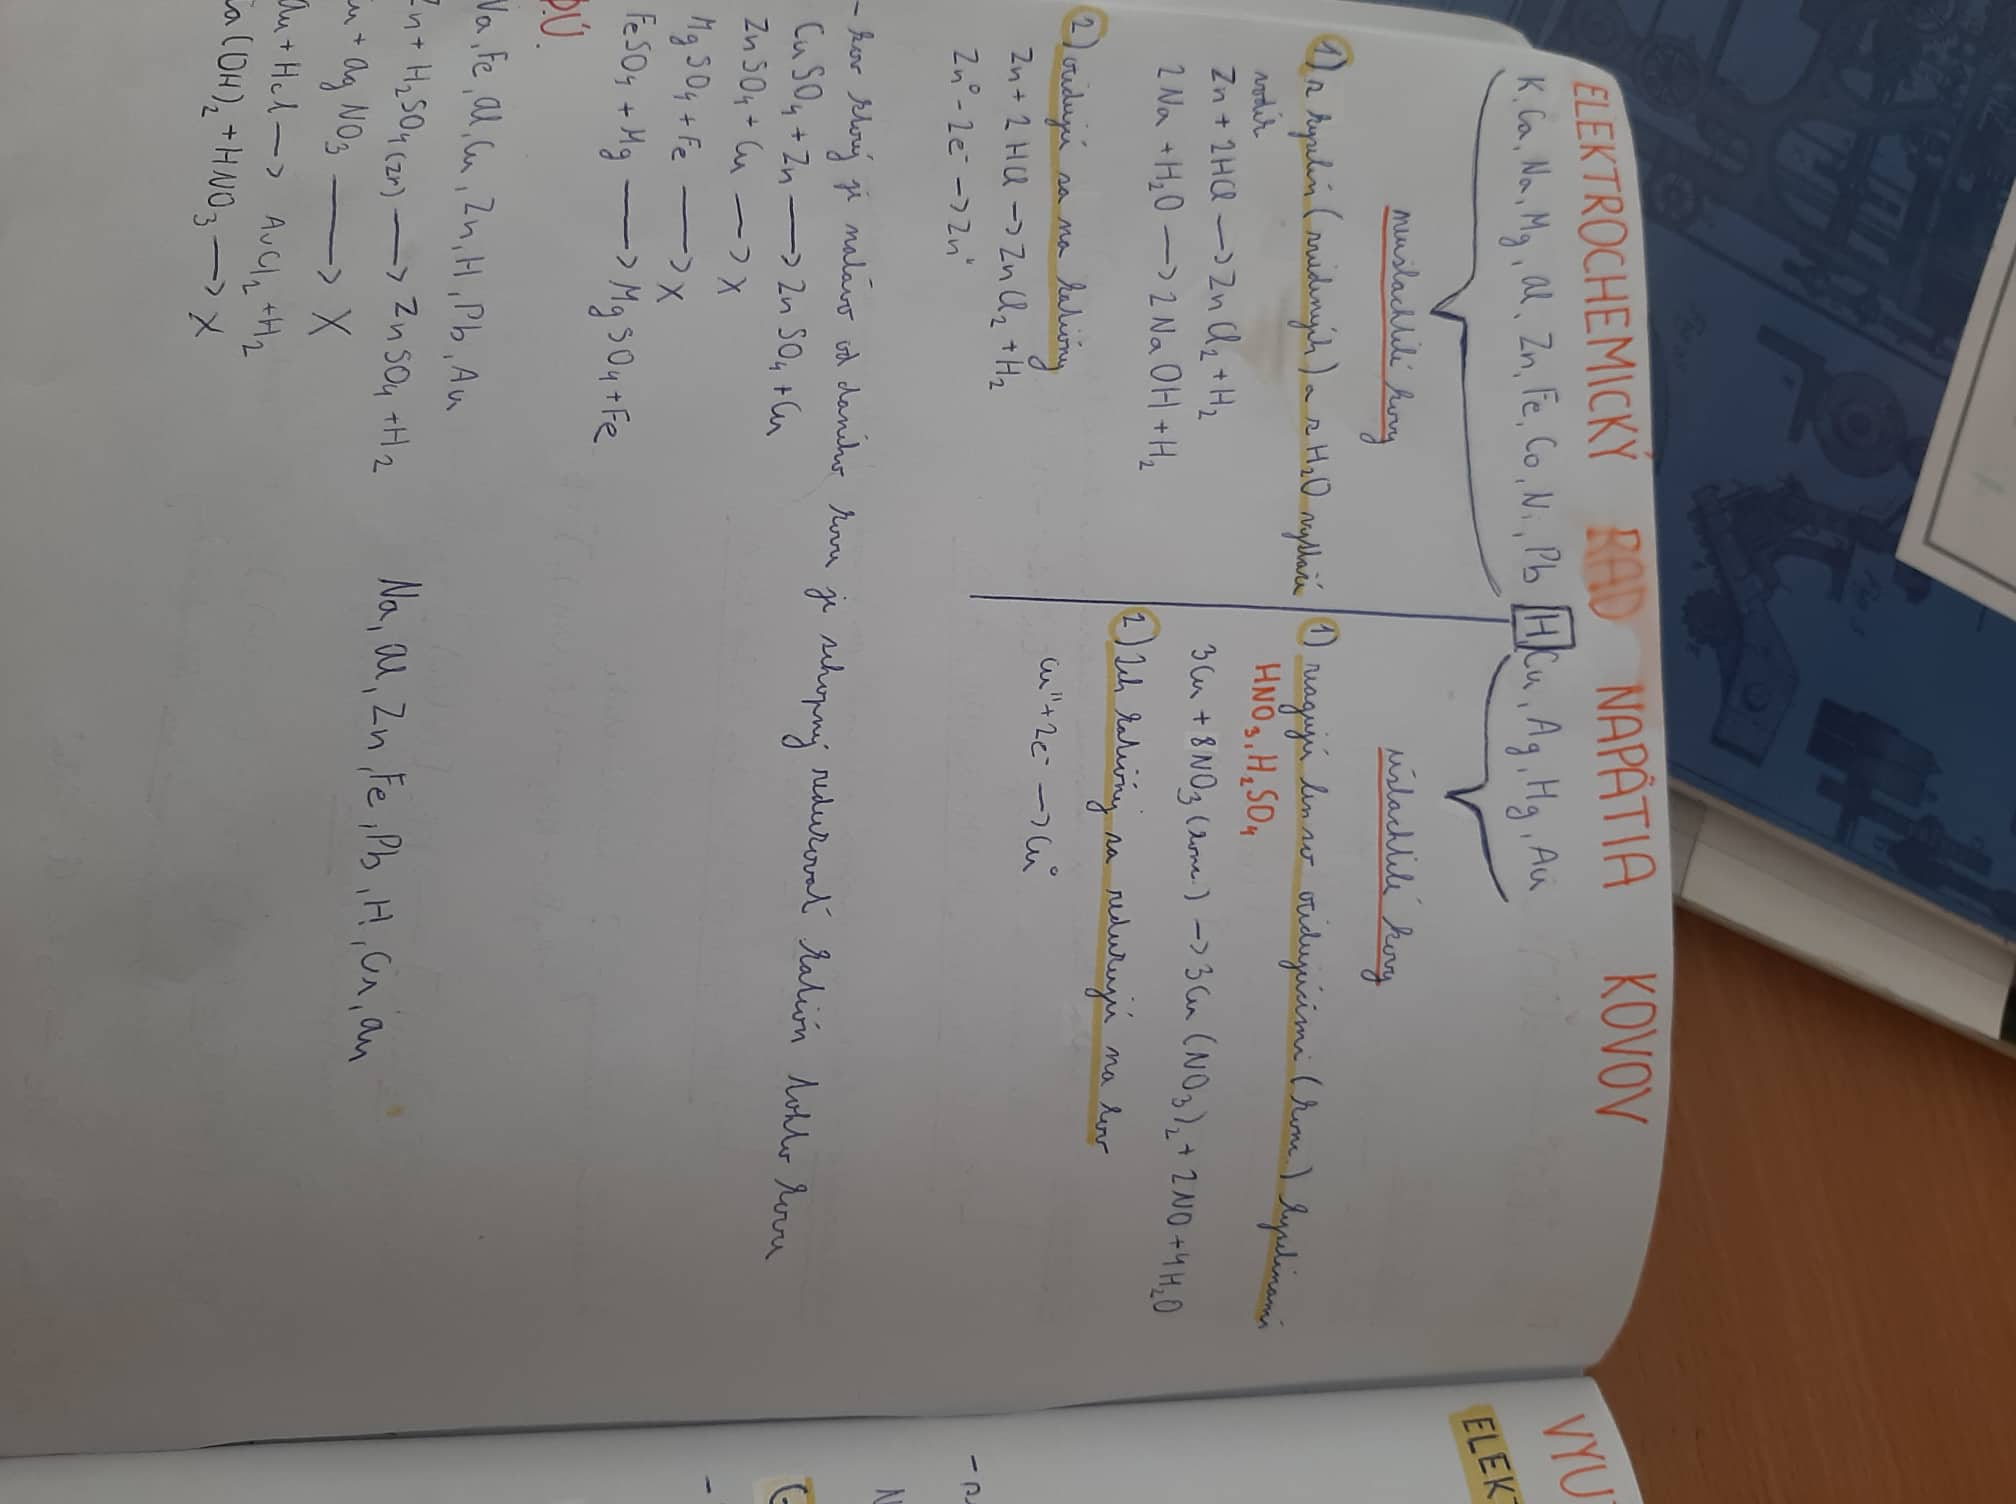 ELEKTROCHEMICKÝ RAD NAPÄTIA KOVOV
K, Ca, Na, Mg, Al, Zn, Fe, Co, Ni, Pb H Cu, Ag, Hg, Au
neušlachtilé kovy
1) z kyselín (zriedených) a z H2O vytláča
vodík
Zn + 2HCl → ZnCl2 + H2
2 Na + H2O → 2 NaOH + H2
2) oxidujú sa na katióny
Zn + 2 HCl → ZnCl2 + H2
Zn⁰ - 2e⁻ → Zn
ušlachtilé kovy
1) reagujú len so oxidujúcimi (konc.) kyselinami
HNO3, H2SO4
3Cu + 8NO3 (konc.) → 3Cu (NO3)2 + 2NO + 4H2O
2) Ich katióny sa redukujú na kov
Cu^II + 2e⁻ → Cu⁰
- kov ktorý je naľavo od daného kovu je schopný redukovať katión tohto kovu
CuSO4 + Zn → ZnSO4 + Cu
ZnSO4 + Cu → X
MgSO4 + Fe → X
FeSO4 + Mg → MgSO4 + Fe
D.Ú.
Na, Fe, Al, Cu, Zn, H, Pb, Au
Zn + H2SO4 (zr) → ZnSO4 + H2
Na, Al, Zn, Fe, Pb, H, Cu, Au
u + Ag NO3 → X
Au + HCl → AuCl2 + H2
a (OH)2 + HNO3 → X
VYU
ELEKT